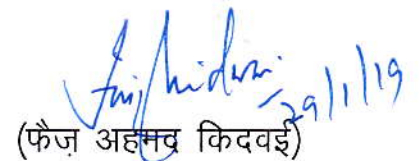 29/1/19
(फैज़ अहमद किदवई)